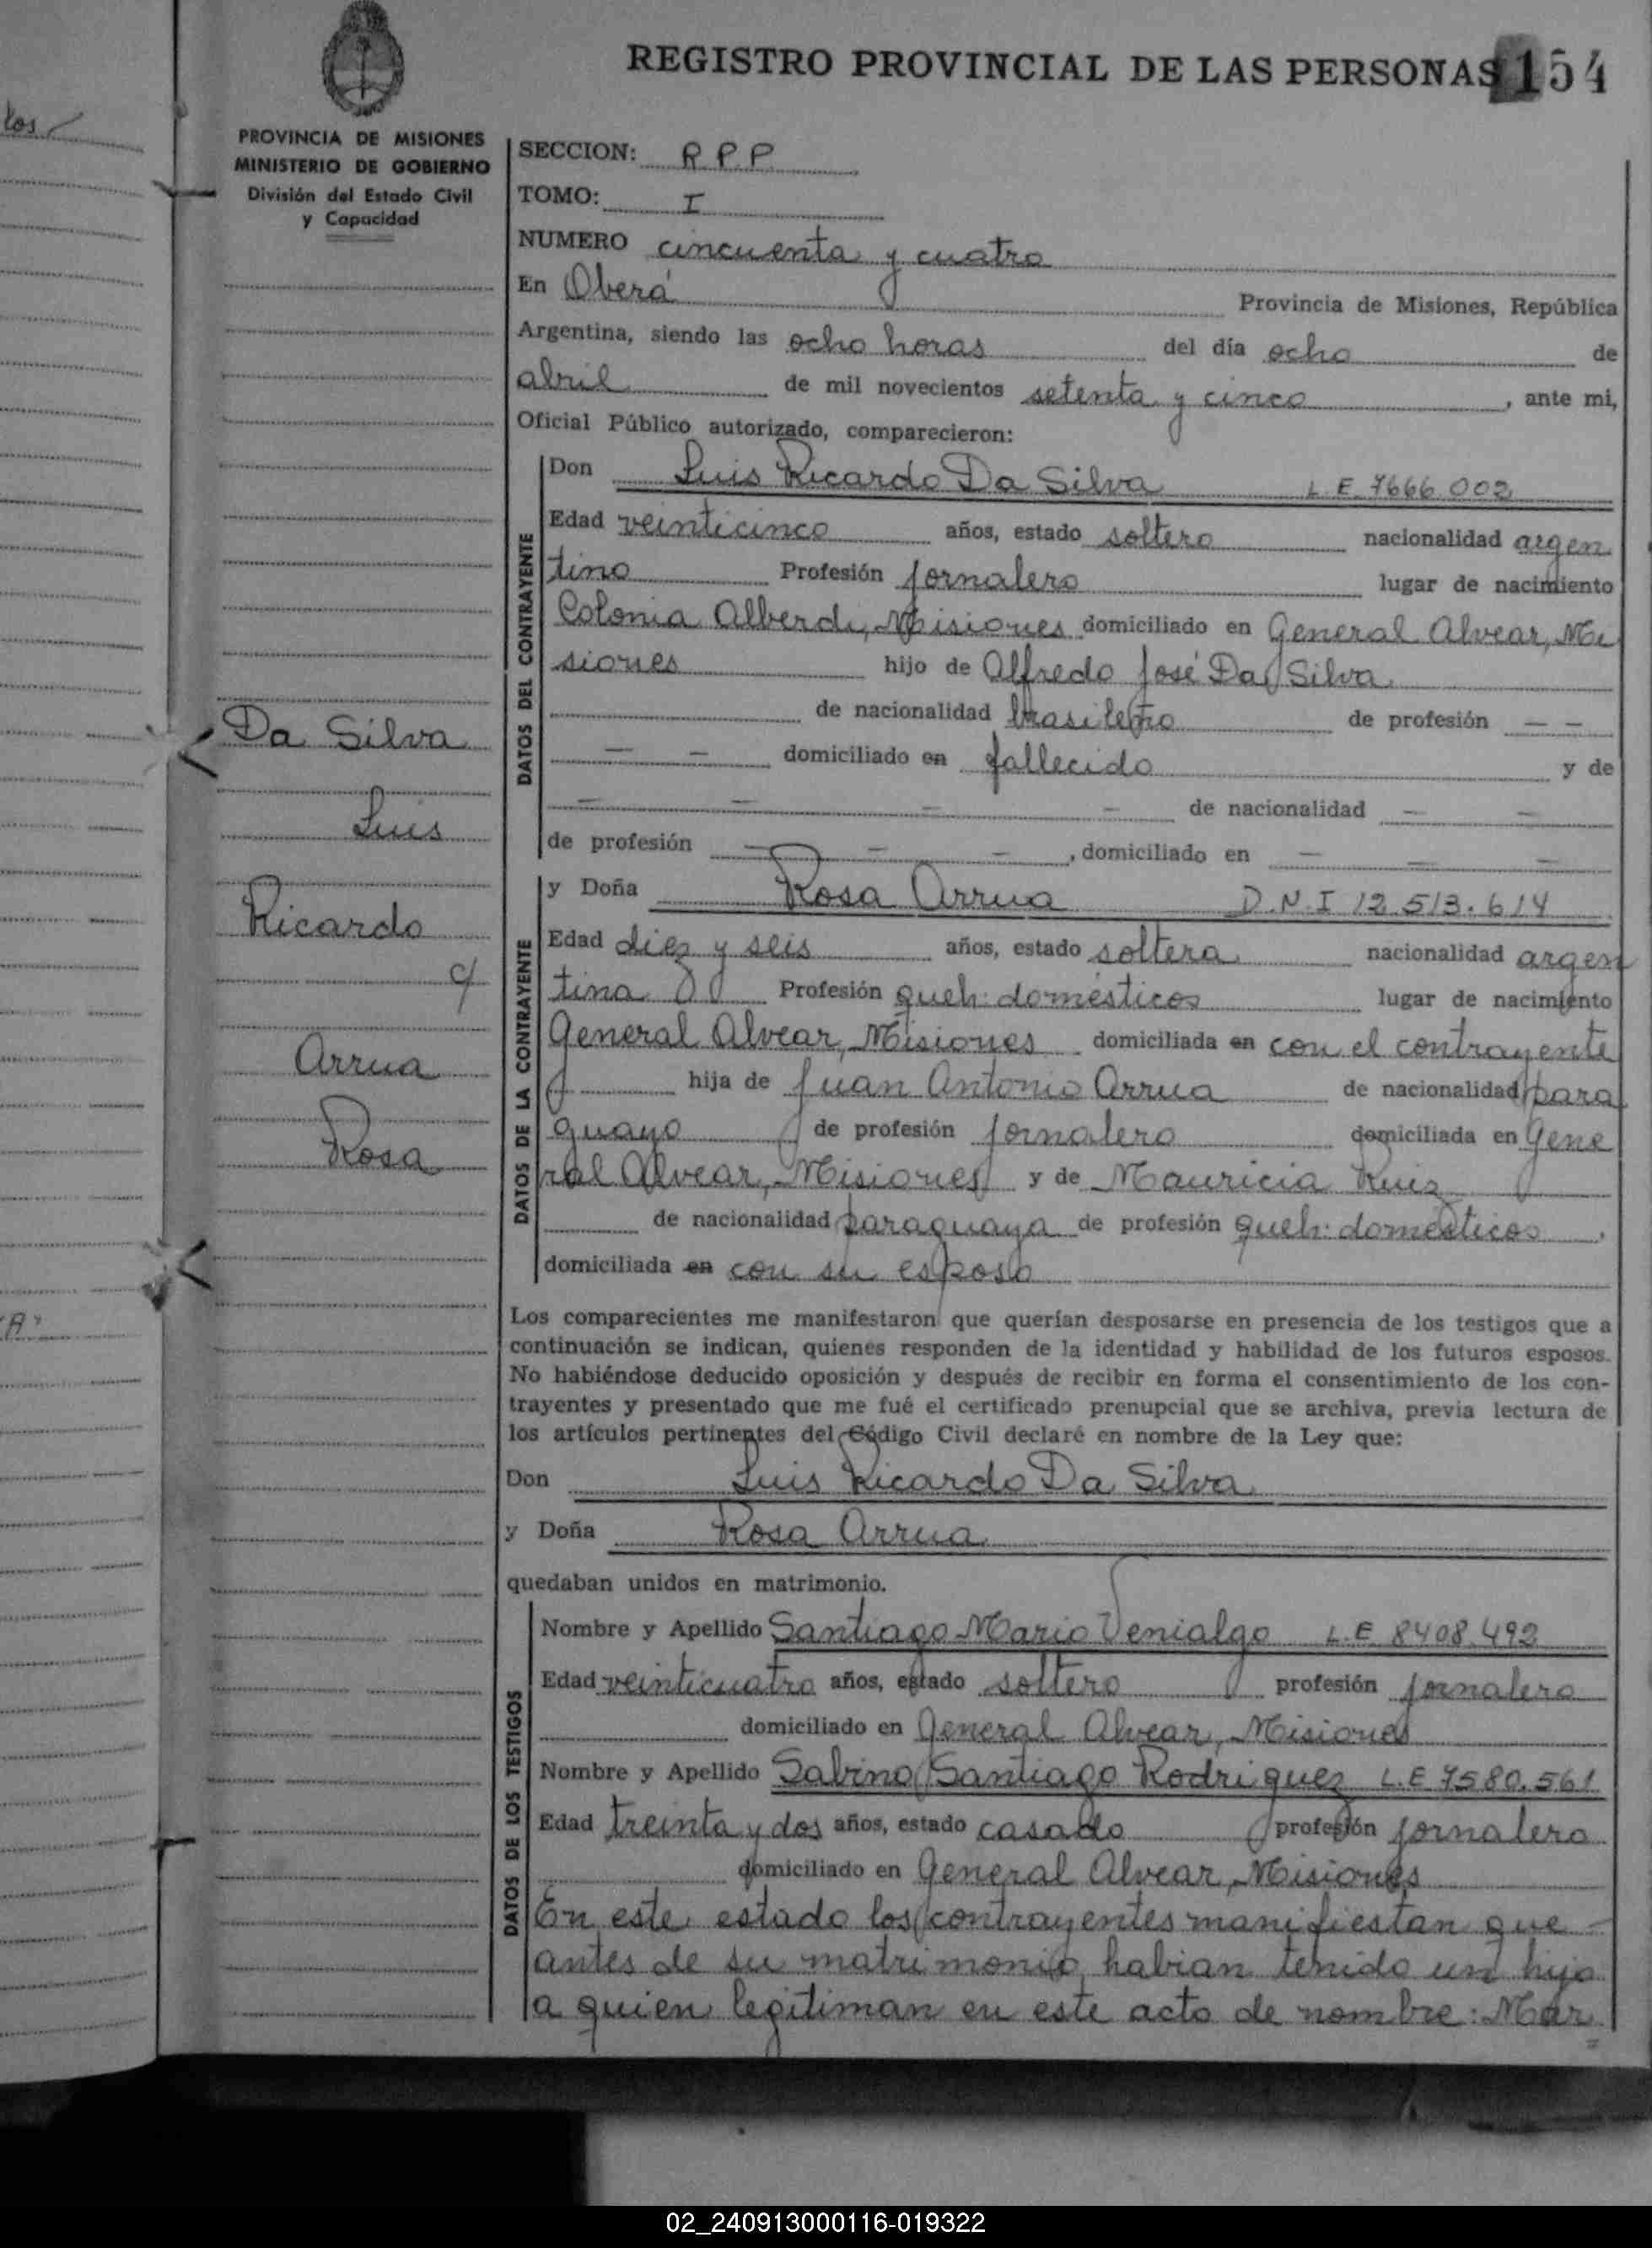 los
REGISTRO PROVINCIAL DE LAS PERSONAS 154
PROVINCIA DE MISIONES
MINISTERIO DE GOBIERNO
División del Estado Civil
y Capacidad
SECCION: R.P.P.
TOMO: I
NUMERO cincuenta y cuatro
En Oberá Provincia de Misiones, República
Argentina, siendo las ocho horas del día ocho de
abril de mil novecientos setenta y cinco, ante mi,
Oficial Público autorizado, comparecieron:
DATOS DEL CONTRAYENTE
Don Luis Ricardo Da Silva L.E. 7666.002
Edad veinticinco años, estado soltero nacionalidad argen
tino Profesión jornalero lugar de nacimiento
Colonia Alberdi, Misiones domiciliado en General Alvear, Mi
siones hijo de Alfredo José Da Silva
de nacionalidad brasileño de profesión — —
— — domiciliado en fallecido y de
— — — — de nacionalidad — —
de profesión — — —, domiciliado en — — —
DATOS DE LA CONTRAYENTE
y Doña Rosa Arrua D.N.I 12.513.614
Edad diez y seis años, estado soltera nacionalidad argen
tina Profesión queh. domésticos lugar de nacimiento
General Alvear, Misiones domiciliada en con el contrayente
hija de Juan Antonio Arrua de nacionalidad para
guayo de profesión jornalero domiciliada en Gene
ral Alvear, Misiones y de Mauricia Ruiz
de nacionalidad paraguaya de profesión queh. domésticos,
domiciliada en con su esposo
Da Silva
Luis
Ricardo
c/
Arrua
Rosa
Los comparecientes me manifestaron que querían desposarse en presencia de los testigos que a
continuación se indican, quienes responden de la identidad y habilidad de los futuros esposos.
No habiéndose deducido oposición y después de recibir en forma el consentimiento de los con-
trayentes y presentado que me fué el certificado prenupcial que se archiva, previa lectura de
los artículos pertinentes del Código Civil declaré en nombre de la Ley que:
Don Luis Ricardo Da Silva
y Doña Rosa Arrua
quedaban unidos en matrimonio.
DATOS DE LOS TESTIGOS
Nombre y Apellido Santiago Mario Venialgo L.E 8408.492
Edad veinticuatro años, estado soltero profesión jornalero
domiciliado en General Alvear, Misiones
Nombre y Apellido Sabino Santiago Rodriguez L.E 7580.561
Edad treinta y dos años, estado casado profesión jornalero
domiciliado en General Alvear, Misiones
En este estado los contrayentes manifiestan que
antes de su matrimonio habian tenido un hijo
a quien legitiman en este acto de nombre: Mar
02_240913000116-019322